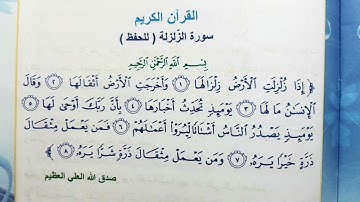 القرآن الكريم
سورة الزلزلة ( للحفظ )
بِسْمِ اللَّهِ الرَّحْمَٰنِ الرَّحِيمِ
﴿ إِذَا زُلْزِلَتِ الْأَرْضُ زِلْزَالَهَا ١ وَأَخْرَجَتِ الْأَرْضُ أَثْقَالَهَا ٢ وَقَالَ
الْإِنسَٰنُ مَا لَهَا ٣ يَوْمَئِذٍ تُحَدِّثُ أَخْبَارَهَا ٤ بِأَنَّ رَبَّكَ أَوْحَىٰ لَهَا ٥
يَوْمَئِذٍ يَصْدُرُ النَّاسُ أَشْتَاتًا لِّيُرَوْا أَعْمَٰلَهُمْ ٦ فَمَن يَعْمَلْ مِثْقَالَ
ذَرَّةٍ خَيْرًا يَرَهُۥ ٧ وَمَن يَعْمَلْ مِثْقَالَ ذَرَّةٍ شَرًّا يَرَهُۥ ٨ ﴾
صدق الله العلي العظيم